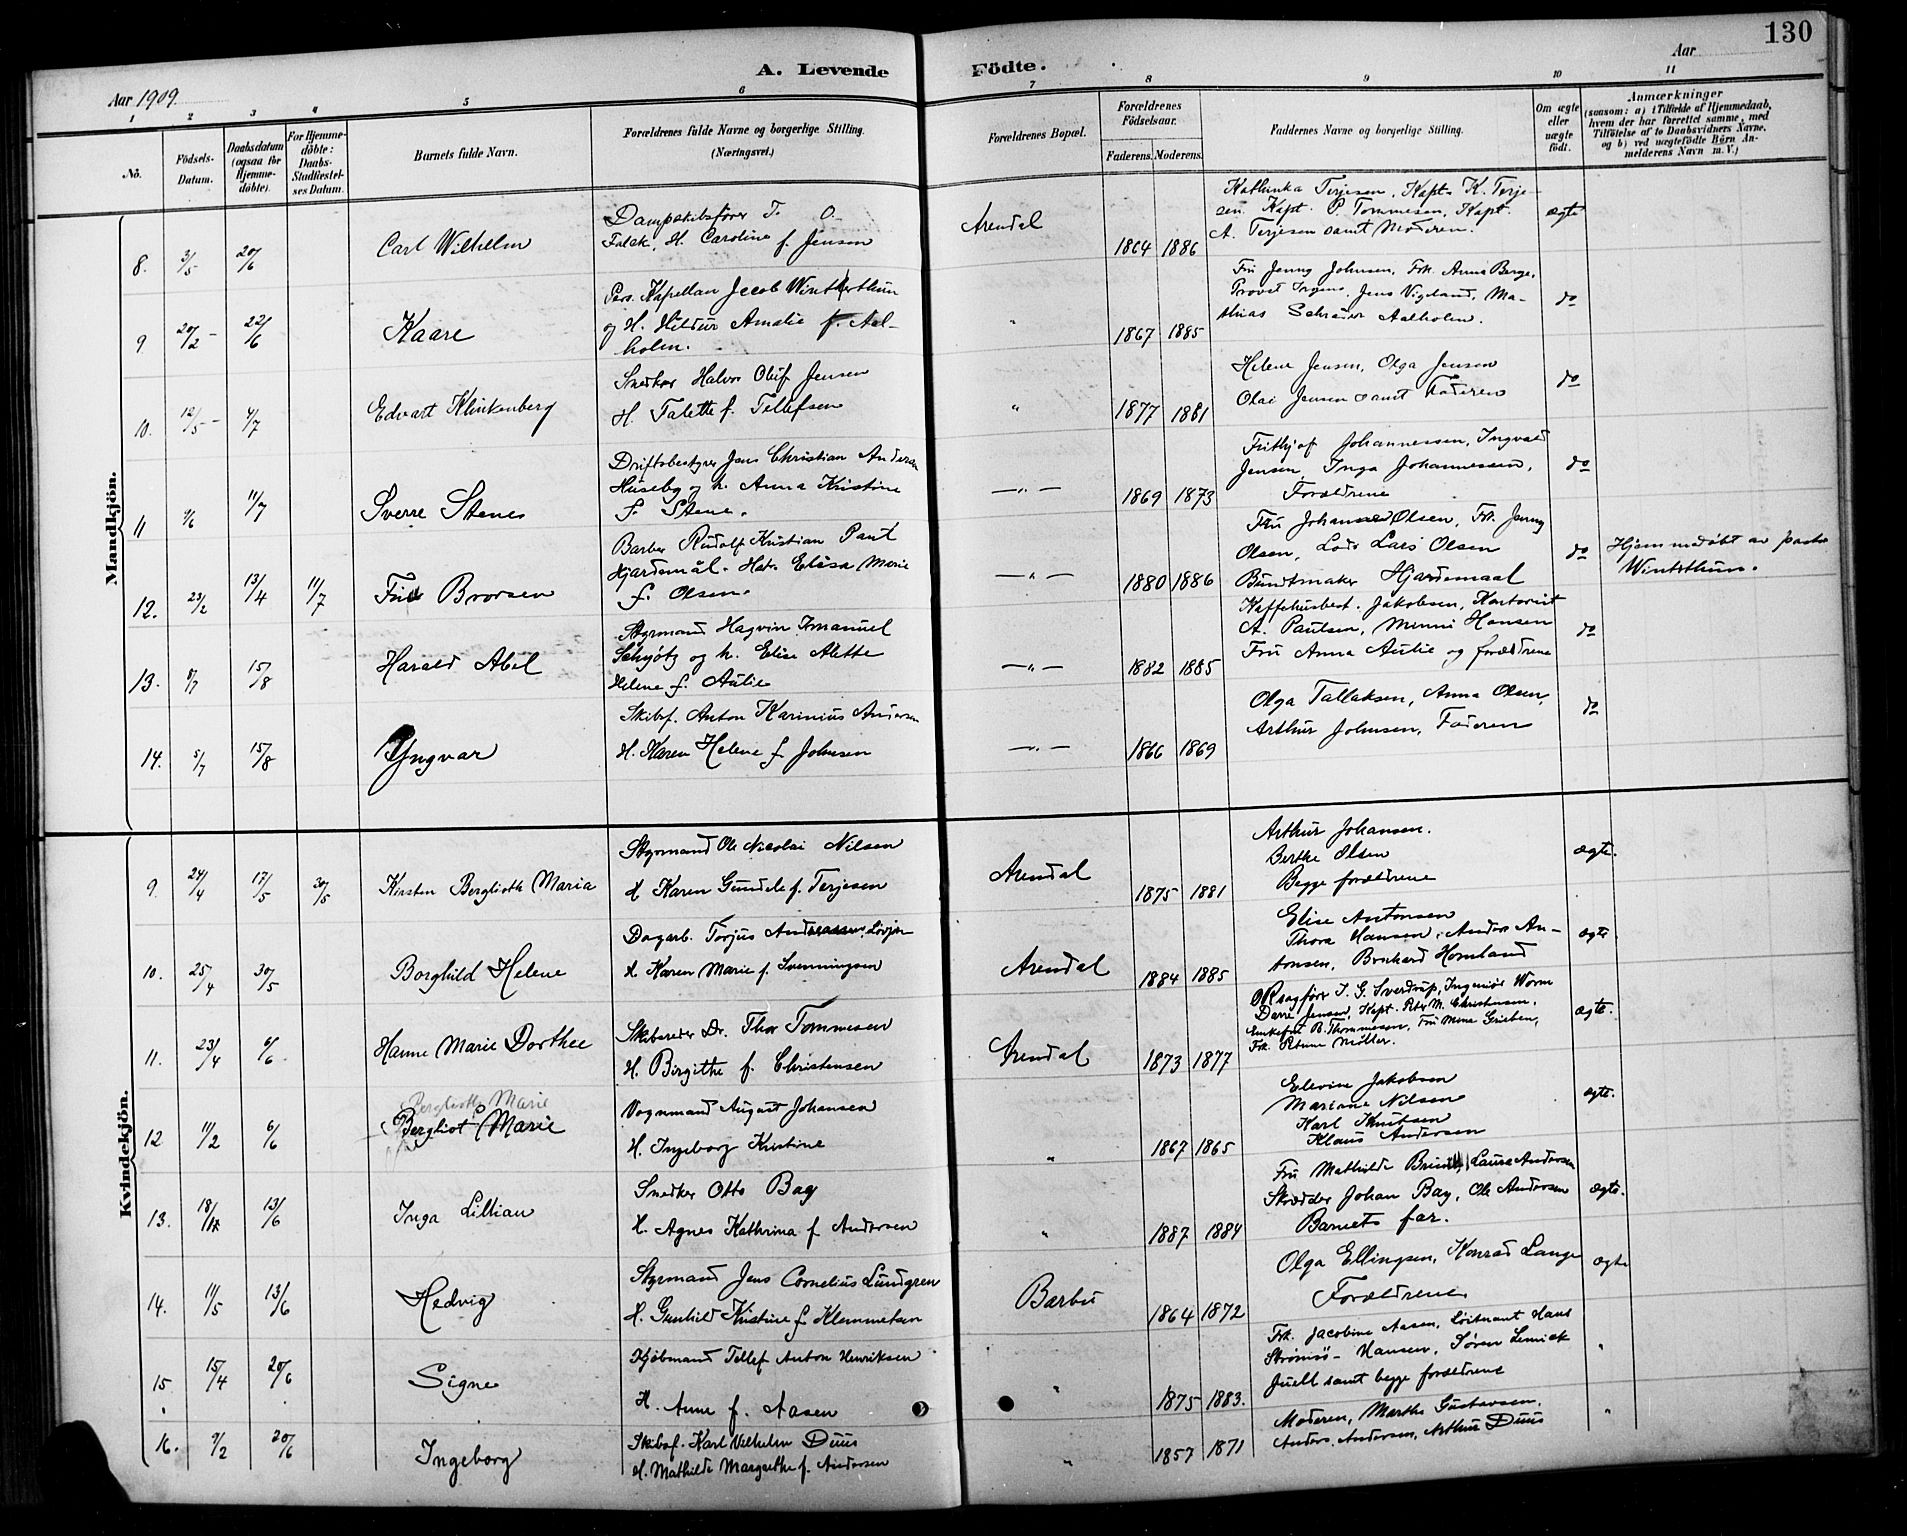 130
A. Levende Födte.
Aar 1909.
Aar
1 2 3 4 5 6 7 8 9 10 11
No.
Födsels-Datum.
Daabsdatum (ogsaa for Hjemme-döbte).
For Hjemme-döbte: Daabs-Stadfæstel-ses Datum.
Barnets fulde Navn.
Forældrenes fulde Navne og borgerlige Stilling.
(Næringsvei.)
Forældrenes Bopæl.
Forældrenes Födselsaar.
Faderens. Moderens.
Faddernes Navne og borgerlige Stilling.
Om ægte eller uægte födt.
Anmærkninger
(saasom: a) i Tilfælde af Hjemmedaab, hvem der har forrettet samme, med Tilföielse af to Daabsvidners Navne, og b) ved uægtefödte Börn Anmelderens Navn m. V.)
Mandkjön.
8. 3/5 20/6 Carl Wilhelm
Dampskibsfører T. O.
Falck, H. Caroline f. Jensen
Arendal 1864 1886
Kathinka Terjesen, Kapt. K. Terje-
sen. Kapt. P. Tommesen, Kapt.
A. Terjesen samt Moderen.
ægte
9 20/2 22/6 Kaare
Pers. Kapellan Jacob Wintherthun
og H. Hildur Amalie f. Aal-
holm.
" 1867 1885
Fru Jenny Johnsen, Frk. Anna Berge,
Provst Irgens, Jens Vigeland, Ma-
thias Schrøder Aalholm.
do
10. 12/5 4/7 Edvart Klinkenberg
Snedker Halvor Oluf Jensen
H. Talette f. Tellefsen
" 1877 1881
Helene Jensen, Olga Jensen
Olai Jensen samt Faderen
do
11 9/6 11/7 Sverre Stenes
Driftsbestyrer Jens Christian Andersen
Huseby og h. Anna Kristine
f. Stene.
" 1869 1873
Frithjof Johannessen, Ingvald
Jensen, Inga Johannessen,
Forældrene
do
12. 23/2 13/4 11/7 Brorsen
Barber Rudolf Kristian Paul
Hjardemål. Hstr. Elisa Marie
f. Olsen.
" 1880 1886
Fru Johanne Olsen, Frk. Jenny
Olsen, Lods Lars Olsen
Buntmaker Hjardemaal
do
Hjemmedøbt av pastor
Winterthun.
13. 8/7 15/8 Harald Abel
Styrmand Hagvin Imanuel
Schyøtz og h. Elise Alette
Helene f. Aulie
" 1882 1885
Kaffehusbest. Jakobsen, Kontorist
A. Paulsen, Minni Hansen
Fru Anna Aulie og forældrene
do
14. 5/7 15/8 Yngvar
Skibsf. Anton Karinius Andersen
H. Karen Helene f. Johnsen
" 1866 1869
Olga Tallaksen, Anna Olsen,
Arthur Johnsen, Faderen
do
Kvindekjön.
9. 24/4 17/5 30/5 Kirsten Berglioth Maria
Styrmand Ole Nicolai Nilsen
H. Karen Gundele f. Terjesen
Arendal 1875 1881
Arthur Johansen.
Berthe Olsen
Begge forældrene
ægte.
10. 25/4 30/5 Borghild Helene
Dagarb. Torjus Andreassen
H. Karen Marie f. Svenningsen
Arendal 1884 1885
Elise Antonsen
Thora Hansen, Anders An-
tonsen, Bernhard Homland
ægte
11. 23/4 6/6 Hanne Marie Dorthee
Skibsreder Dr. Thor Tommesen
H. Birgithe f. Christensen
Arendal 1873 1877
ORsagfører J. G. Sverdrup, Ingeniør Worm
Darre Jensen, Kapt. Peter M. Christensen,
Enkefru B. Thommesen, Fru Mina Grieben,
Frk. Møller.
ægte.
Bergliotte Marie
12 11/2 6/6 Bergliot Marie
Vognmand August Johansen
H. Ingeborg Kristine
" 1867 1865
Elevine Jakobsen
Mariane Nilsen
Karl Knutsen
Klaus Andersen
ægte.
13. 13/6 Inga Lillian
Snedker Otto Bay
H. Agnes Kathrina f Andersen
" 1887 1884
Fru Mathilde Laura Andersen
Skrædder Johan Bay, Ole Andersen
Barnets far.
ægte.
14. 11/5 13/6 Hedvig
Styrmand Jens Cornelius Lundgren
H. Gunhild Kristine f. Klemmetsen
Barbu 1864 1872
Olga Ellingsen, Konrad Lange
Forældrene
ægte
15 15/4 20/6 Signe
Kjøbmand Tellef Anton Henriksen
H. Anne f. Aasen
" 1875 1883.
Frk. Jacobine Aasen, Løitnant Hans
Strømsø-Hansen, Søren
Juell samt begge forældrene
"
16. 9/2 20/6 Ingeborg
Skibsf. Karl Vilhelm Duus
H. Mathilde Margrethe f. Andersen
" 1857 1871
Moderen, Marthe Gustavsen,
Anders Andersen, Arthur Duus
"